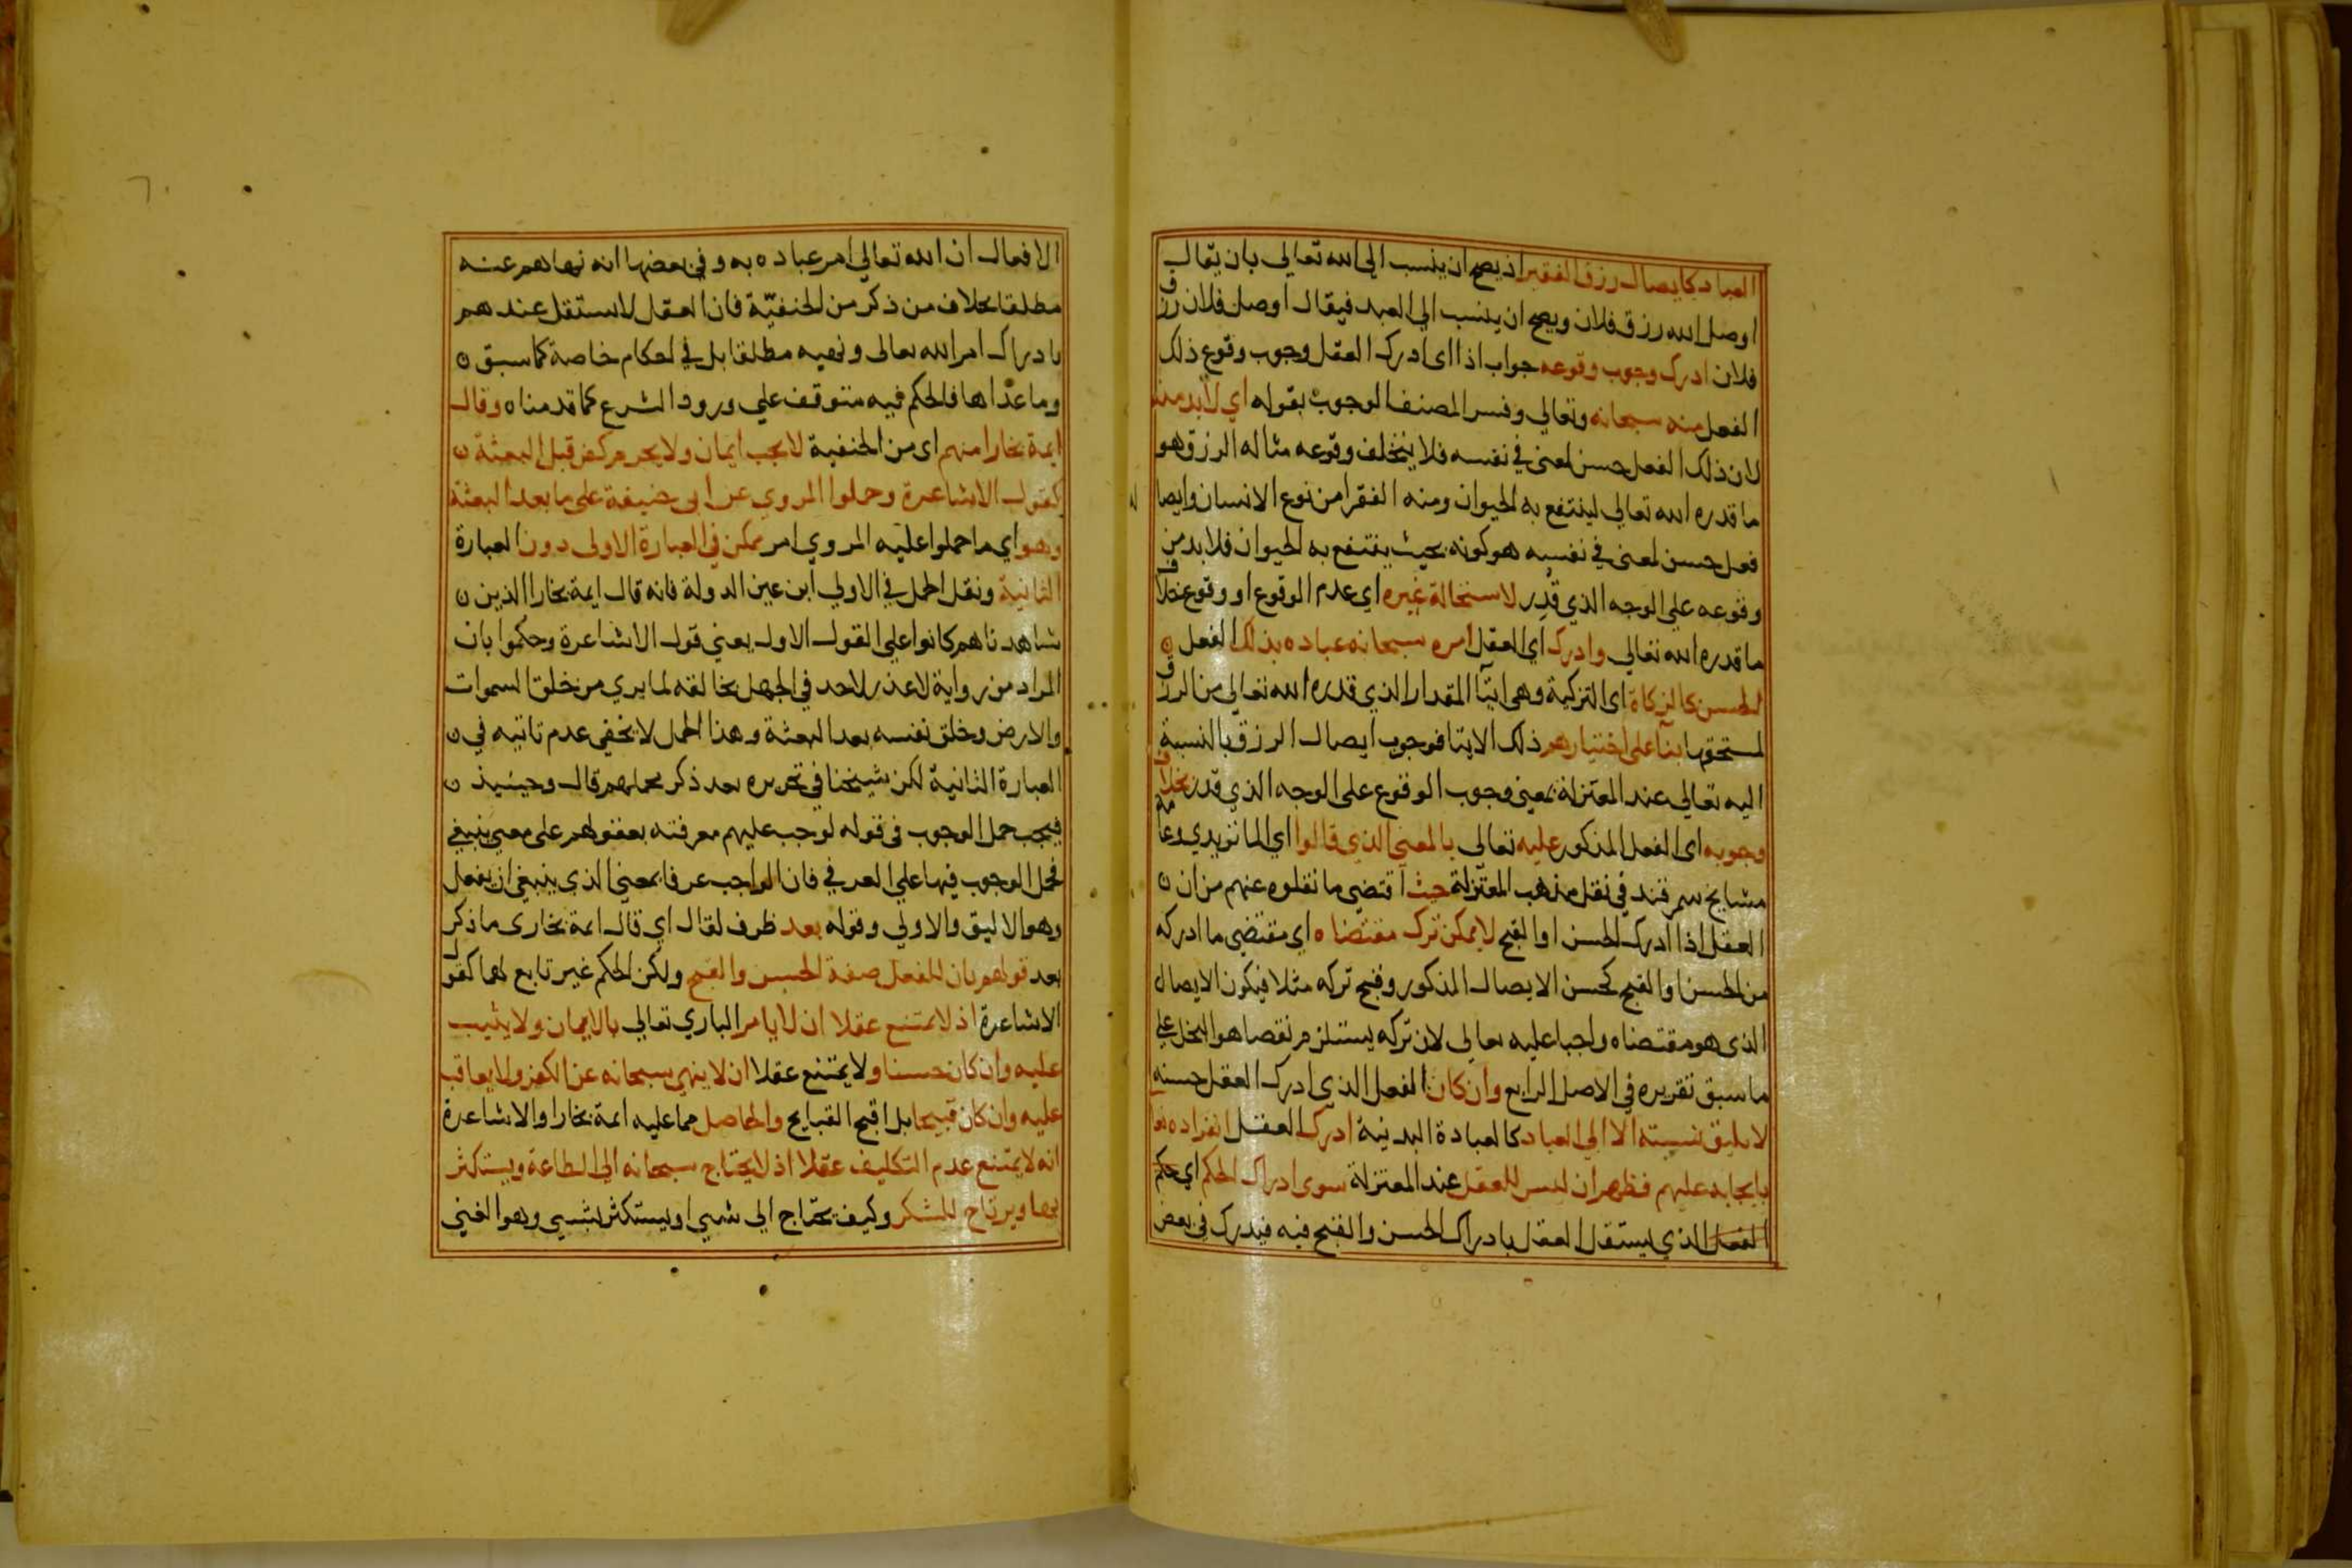 العباد كايصال رزق الفقير اذ يصح ان ينسب الى الله تعالى بان يقال
اوصل الله رزق فلان ويصح ان ينسب الي العبد فيقال اوصل فلان رزق
فلان ادرك وجوب وقوعه جواب اذا اى ادرك العقل وجوب وقوع ذلك
الفعل منه سبحانه وتعالي وفسر المصنف الوجوب بقوله اي لابد منه
لان ذلك الفعل حسن لمعنى في نفسه فلا يتخلف وقوعه مثاله الرزق وهو
ما قدره الله تعالي لينتفع به الحيوان ومنه الفقرا من نوع الانسان وايصاله
فعل حسن لمعنى في نفسه هو كونه بحيث ينتفع به الحيوان فلا بد من
وقوعه على الوجه الذي قدر لاستحالة غيره اي عدم الوقوع او وقوع خلاف
ما قدره الله تعالي وادرك اي العقل امره سبحانه عباده بذلك الفعل
الحسن كالزكاة اى التزكية وهي ايتآ المقدار الذي قدره الله تعالي من الرزق
لمستحقها بنآ على اختيارهم ذلك الايتا فوجوب ايصال الرزق بالنسبة
اليه تعالي عند المعتزلة بمعنى وجوب الوقوع على الوجه الذي قدر بخلاف
وجوبه اى الفعل المذكور عليه تعالي بالمعنى الذي قالوا اي الماتريدي وعامة
مشايخ سمرقند في نقل مذهب المعتزلة حيث اقتضى ما نقلوه عنهم من ان
العقل اذا ادرك الحسن او القبح لا يمكن ترك مقتضاه اي مقتضي ما ادركه
من الحسن او القبح كحسن الايصال المذكور وقبح تركه مثلا فيكون الايصال
الذى هو مقتضاه واجبا عليه تعالي لان تركه يستلزم نقصا هو البخل على
ما سبق تقريره في الاصل الرابع وان كان الفعل الذي ادرك العقل حسنه
لا يليق نسبته الا الي العباد كالعبادة البدنية ادرك العقل انفراده تعا
بايجابه عليهم فظهر ان ليس للعقل عند المعتزلة سوى ادراك الحكم اي حكم
الفعل الذي يستقل العقل بادراك الحسن والقبح فيه فيدرك في بعض
الافعال ان الله تعالي امر عباده به وفي بعضها انه نهاهم عنه
مطلقا بخلاف من ذكر من الحنفيّة فان العقل لا يستقل عندهم
بادراك امر الله تعالى ونهيه مطلقا بل في احكام خاصة كما سبق
وما عداها فالحكم فيه متوقف علي ورود الشرع كما قدمناه وقال
ايمة بخارا منهم اى من الحنفية لا يجب ايمان ولا يحرم كفر قبل البعثة
كقول الاشاعرة وحملوا المروي عن ابى حنيفة على ما بعد البعثة
وهو اي ما حملوا عليه المروي امر ممكن في العبارة الاولى دون العبارة
الثانية ونقل الحمل في الاولي ابن عين الدولة فانه قال ايمة بخارا الذين
شاهدناهم كانوا على القول الاول يعني قول الاشاعرة وحكموا بان
المراد من رواية لا عذر لاحد في الجهل بخالقه لما يري من خلق السموات
والارض وخلق نفسه بعد البعثة وهذا الحمل لا يخفي عدم تاتيه في
العبارة الثانية لكن شيخنا في تحريره بعد ذكر محملهم قال وحينيذ
فيجب حمل الوجوب في قوله لوجب عليهم معرفته بعقولهم على معنى ينبغي
فحمل الوجوب فيها علي العرفي فان الواجب عرفا بمعنى الذي ينبغي ان يفعل
وهو الاليق والاولي وقوله بعد ظرف لقال اي قال ايمة بخارى ما ذكر
بعد قولهم بان للفعل صفة الحسن والقبح ولكن الحكم غير تابع لهما كقول
الاشاعرة اذ لا يمتنع عقلا ان لا يامر الباري تعالي بالايمان ولا يثيب
عليه وان كان حسنا ولا يمتنع عقلا ان لا ينهي سبحانه عن الكفر ولا يعاقب
عليه وان كان قبيحا بل اقبح القبايح والحاصل مما عليه ايمة بخارا والاشاعرة
انه لا يمتنع عدم التكليف عقلا اذ لا يحتاج سبحانه الي الطاعة ويستكثر
بها ويرتاح للشكر وكيف يحتاج الي شيي او يستكثر بشيي وهو الغني